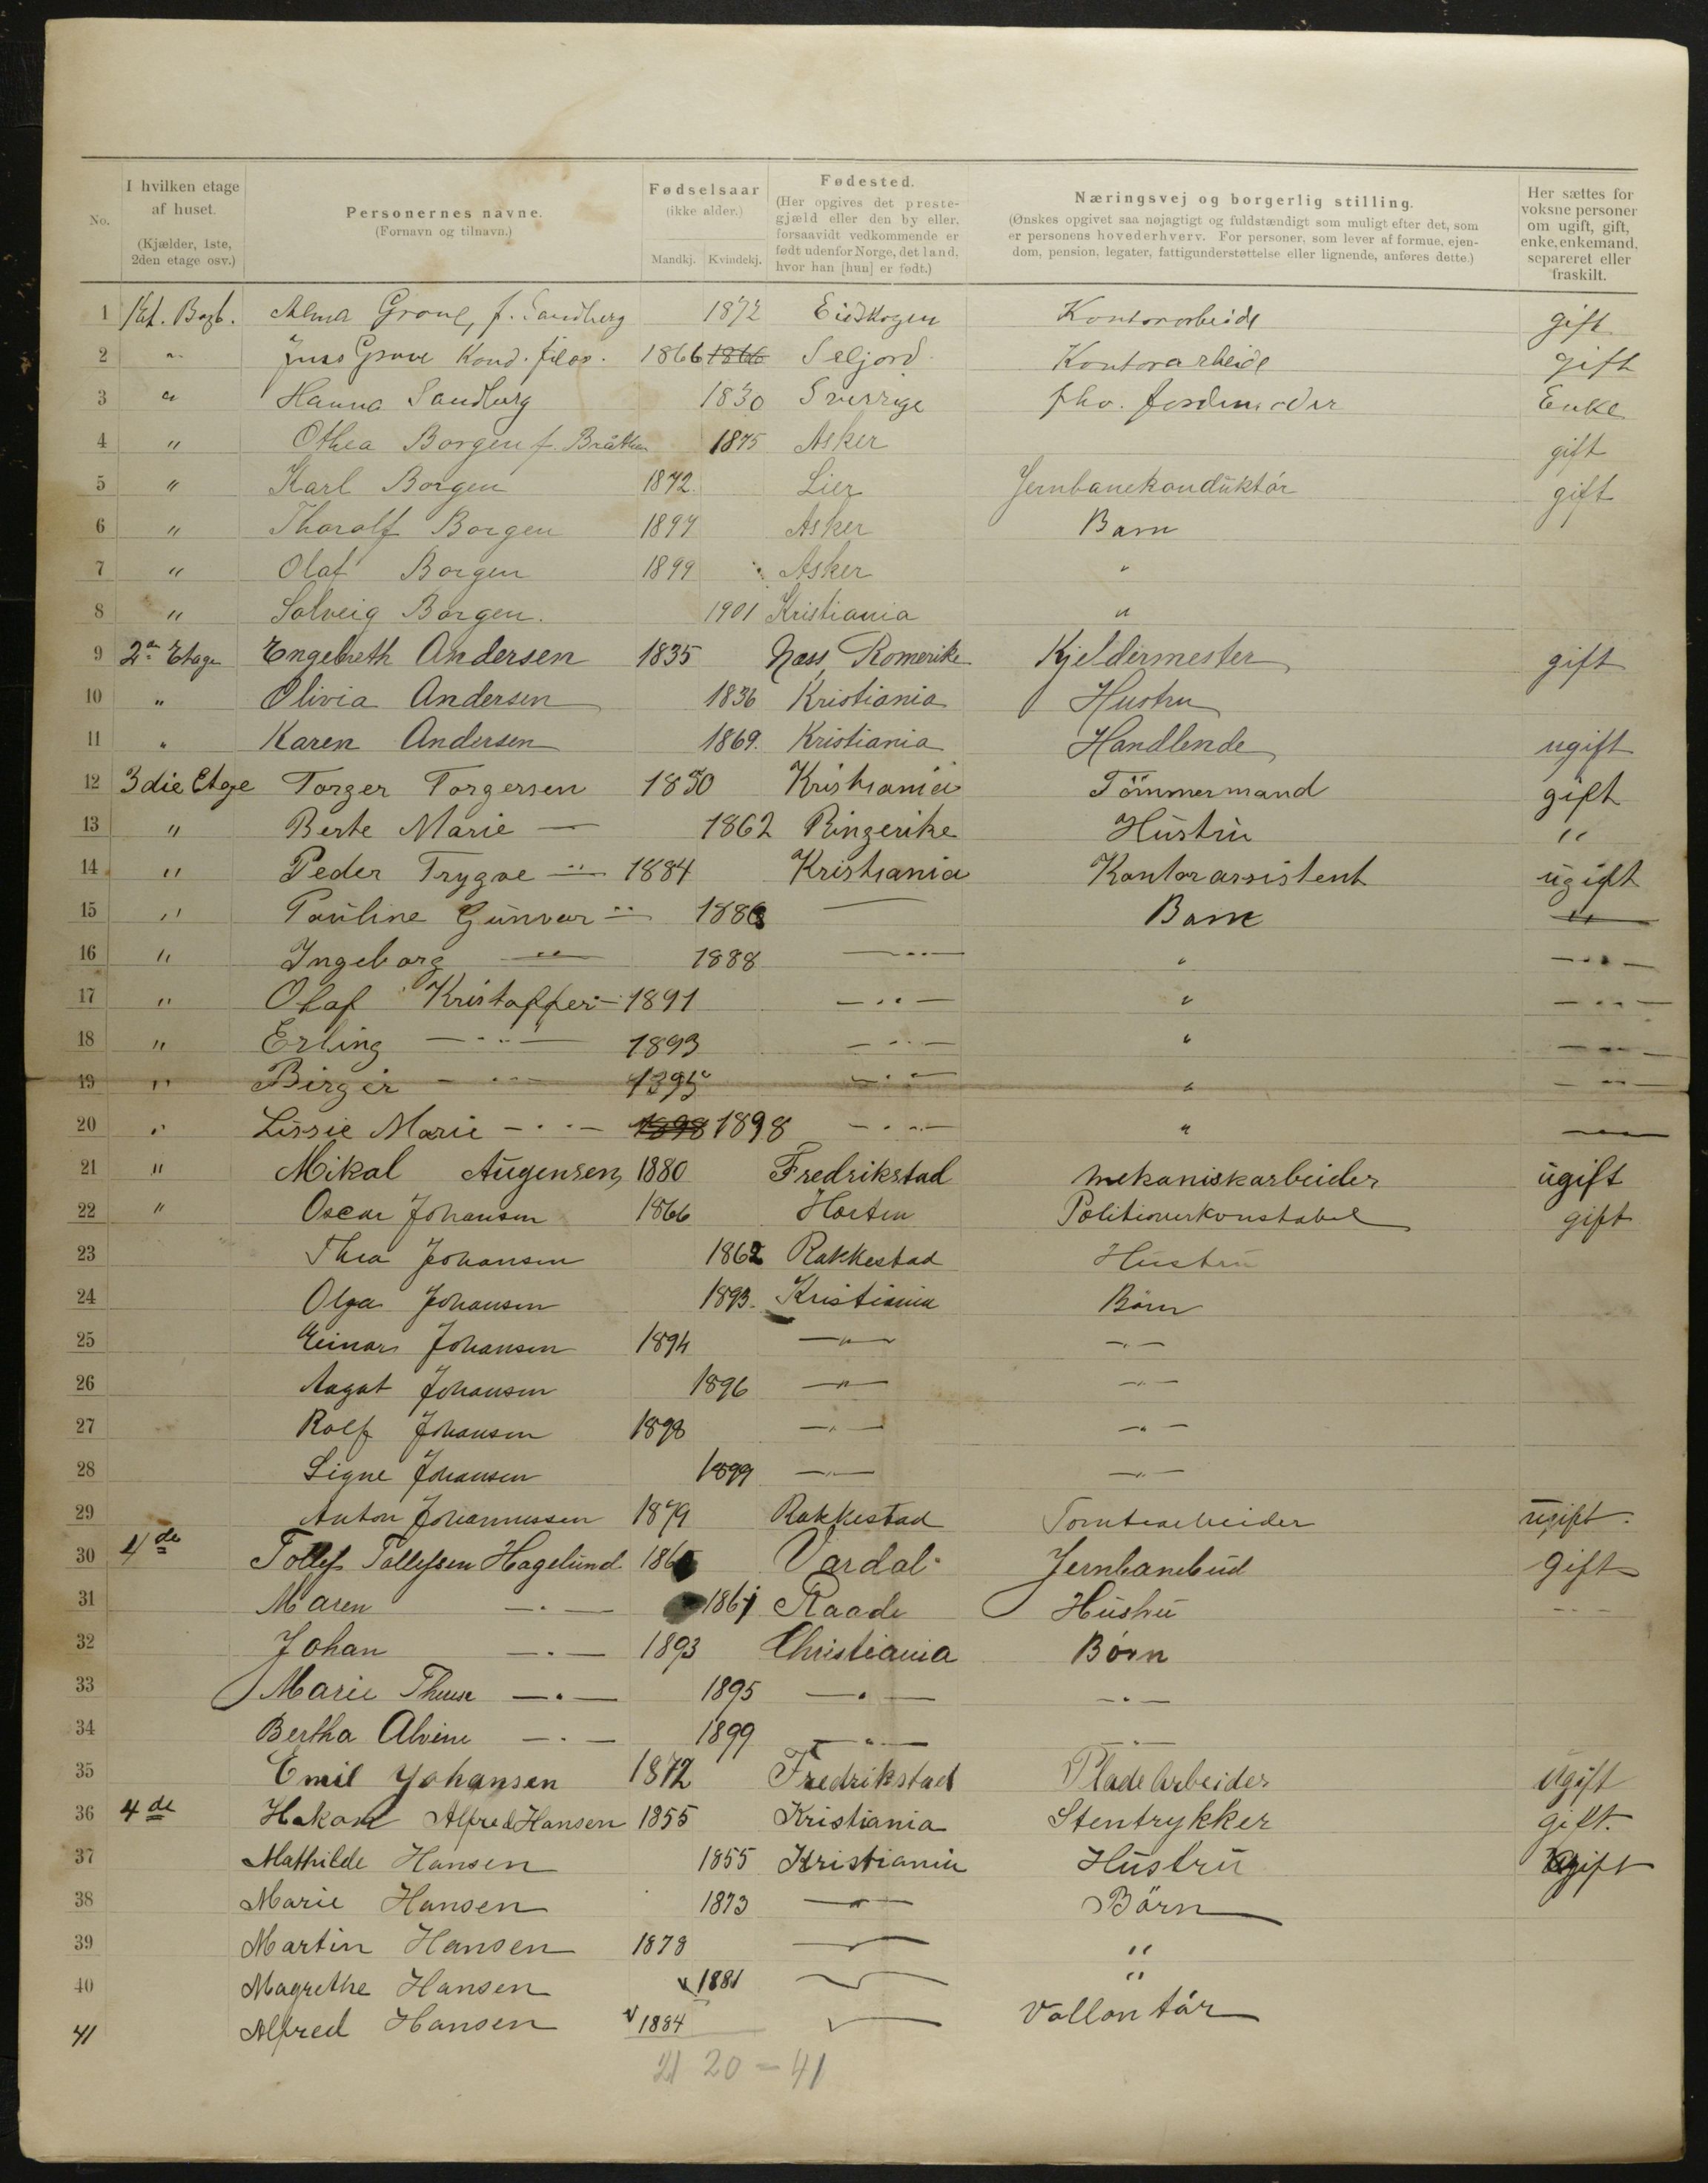 No.
I hvilken etage af huset. (Kjælder, 1ste, 2den etage osv.)
Personernes navne. (Fornavn og tilnavn.)
Fødselsaar (ikke alder.) Mandkj. Kvindekj.
Fødested. (Her opgives det prestegjæld eller den by eller, forsaavidt vedkommende er født udenfor Norge, det land, hvor han [hun] er født.)
Næringsvej og borgerlig stilling. (Ønskes opgivet saa nøjagtigt og fuldstændigt som muligt efter det, som er personens hovederhverv. For personer, som lever af formue, ejendom, pension, legater, fattigunderstøttelse eller lignende, anføres dette.)
Her sættes for voksne personer om ugift, gift, enke, enkemand, separeret eller fraskilt.
1 Alma Grove, f. Sandberg 1872 Eidskogen Kontorarbeide gift
2 " Jens Grove 1866 1866 Seljord Kontorarbeide gift
3 " Hanna Sandberg 1830 Sverrige fhv. Enke
4 " Othea Borgen f. Bråthen 1875 Asker gift
5 " Karl Borgen 1872. Lier Jernbanekonduktør gift
6 " Tharalf Borgen 1897 Asker Barn
7 " Olaf Borgen 1899 Asker "
8 " Solveig Borgen. 1901 Kristiania "
9 2den Etage Engebreth Andersen 1835 Næss, Romerike Kjeldermester gift
10 " Olivia Andersen 1836 Kristiania Hustru
11 " Karen Andersen 1869. Kristiania Handlende ugift
12 3die Etage Torger Torgersen 1850 Kristiania Tömmermand gift
13 " Berte Marie — 1862 Ringerike Hustru "
14 " Peder Trygve —"— 1884 Kristiania Kontorassistent ugift
15 " Pauline Gunvor —"— 1886 — Barn "
16 " Ingeborg —"— 1888 —"— " —"—
17 " Olaf Kristoffer —"— 1891 —"— " —"—
18 " Erling —"— 1893 —"— " —"—
19 " Birger —"— 1895 —"— " —"—
20 " Lissie Marie —"— 1898 1898 —"— " —"—
21 " Mikal Augensen 1880 Fredrikstad mekaniskarbeider ugift
22 " Oscar Johansen 1866 Horten Politioverkonstabel gift
23 Thea Johansen 1862 Rakkestad Hustru
24 Olga Johansen 1893. Kristiania Börn
25 Einar Johansen 1894 —"— —"—
26 Aagot Johansen 1896 —"— —"—
27 Rolf Johansen 1898 —"— —"—
28 Signe Johansen 1899 —"— —"—
29 Anton Johannessen 1879 Rakkestad Tomtearbeider ugift.
30 4de Tollef Tollefsen Hagelund 1865 Vardal Jernbanebud gift
31 Maren —"— 1861 Raade Hustru —"—
32 Johan —"— 1893 Christiania Börn
33 Marie Therese —"— 1895 —"— —"—
34 Bertha Alvine —"— 1899 —"— —"—
35 Emil Johansen 1872 Fredrikstad Pladearbeider ugift
36 4de Hakon Alfred Hansen 1855 Kristiania Stentrykker gift.
37 Mathilde Hansen 1855 Kristiania Hustru gift
38 Marie Hansen 1873 —"— Börn
39 Martin Hansen 1878 — "
40 Magrethe Hansen 1881 — "
41 Alfred Hansen 1884 — Vollontär
21 20 – 41